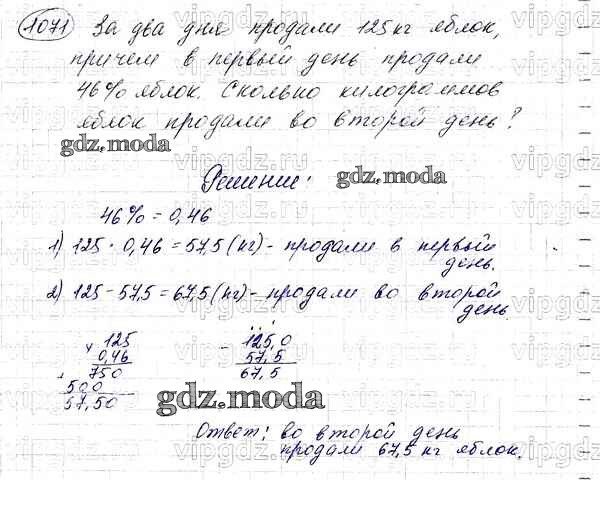 1071 За два дня продали 125 кг яблок,
причем в первый день продали
46% яблок. Сколько килограммов
яблок продали во второй день?
gdz.moda
Решение: gdz.moda
46% = 0,46
1) 125 · 0,46 = 57,5 (кг) - продали в первый
день.
2) 125 - 57,5 = 67,5 (кг) - продали во второй
день.
× 125 - 125,0
0,46 57,5
+ 750 67,5
500
57,50
gdz.moda
Ответ: во второй день
продали 67,5 кг яблок.
vipgdz.ru